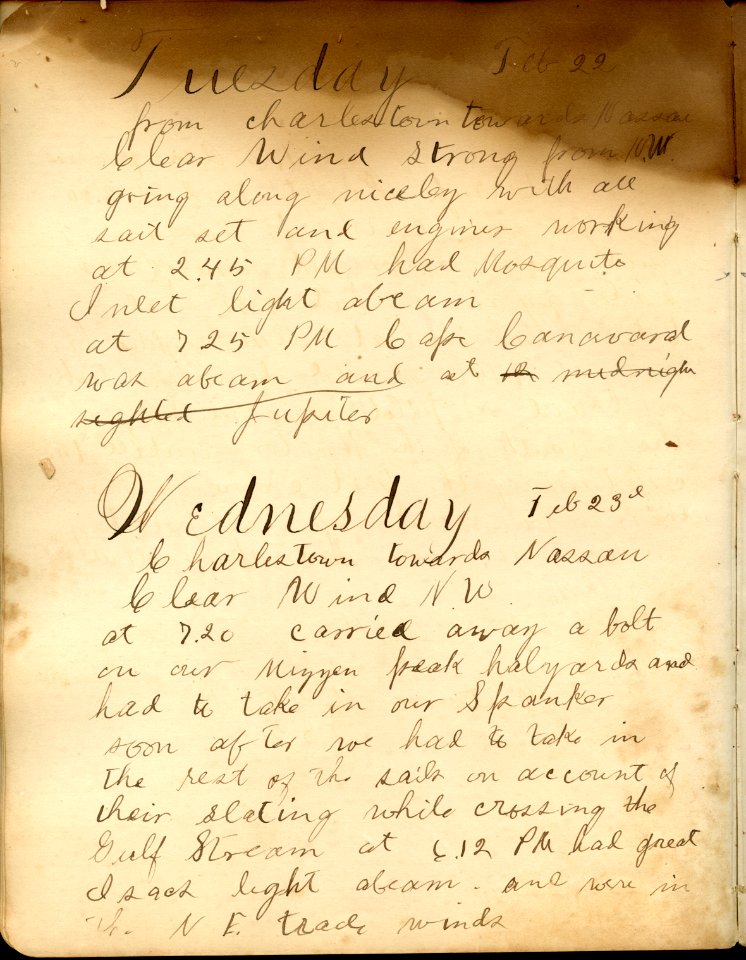 Tuesday Feb 22
from charlestown towards Nassau
Clear Wind strong from N.W.
going along niceley with all
sail set and engines working
at 2.45 PM had Mosquito
Inlet light abeam
at 7 25 PM Cape Canavard
was abeam and at 12 midnigh
sighted Jupiter
Wednesday Feb 23d
Charlestown towards Nassau
Clear Wind N.W
at 7.20 carried away a bolt
on our Mizzen peak halyards and
had to take in our Spanker
soon after we had to take in
the rest of the sails on account of
their slating while crossing the
Gulf Stream at 6.12 PM had great
Isacs light abeam. and were in
the N E. trade winds